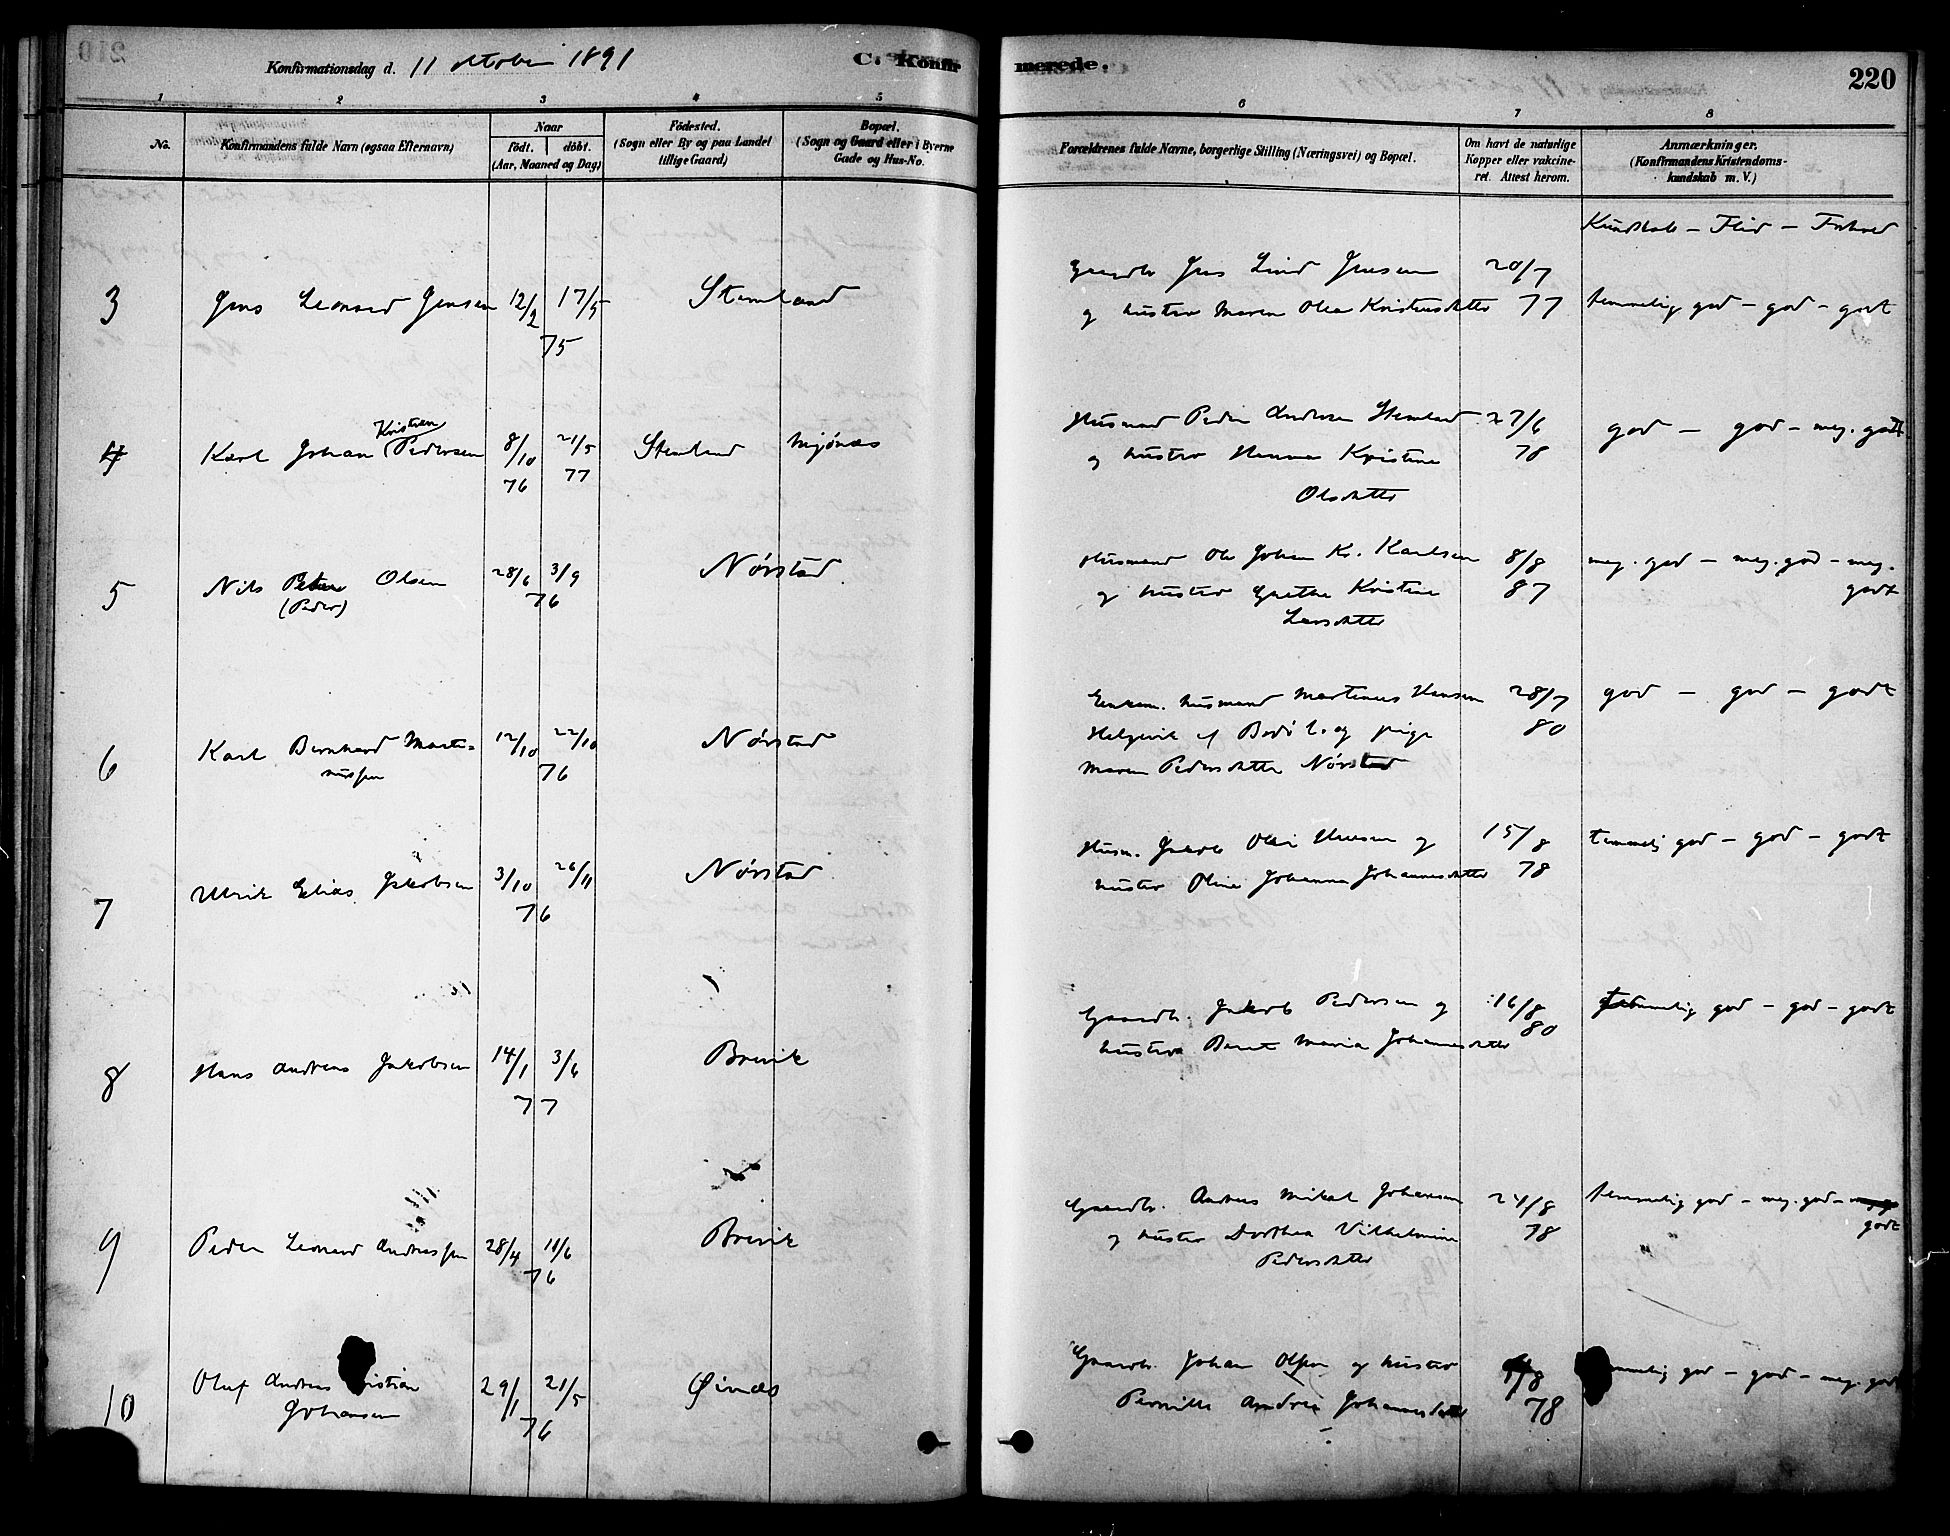 Konfirmationsdag d. 11 oktober 1891
C. Konfirmerede.
220
1 2 3 4 5 6 7 8
No.
Konfirmandens fulde Navn (ogsaa Efternavn)
Naar
født. døbt.
(Aar, Maaned og Dag)
Fødested.
(Sogn eller By og paa Landet
tillige Gaard)
Bopæl.
(Sogn og Gaard eller i Byerne
Gade og Hus-No.
Forældrenes fulde Navne, borgerlige Stilling (Næringsvei) og Bopæl.
Om havt de naturlige
Kopper eller vakcine-
ret. Attest herom.
Anmærkninger.
(Konfirmandens Kristendoms-
kundskab m. V.)
Kundskab – Flid – Forhold
3 Jens Leonard Jensen 12/2 17/5 75 Stemland
Gaardbr. Jens Lind Jensen
og hustru Maren Olea Kristensdatter
20/7 77
temmelig god – god – godt
4 Karl Johan Kristian Pedersen 8/10 76 21/5 77 Stemland Mjønæs
Husmand Peder Andersen Stemland
og hustru Hanna Kristine
Olsdatter
27/6 78
god – god – meg. godt
5 Nils Peter Olsen
(Peder)
28/6 3/9 76 Nørstad
Husmand Ole Johan Kr. Karlsen
og hustru Grethe Kristine
Larsdatter
8/8 87
meg. god – meg. god – meg.
godt
6 Karl Bernhard Marti-
nussen
12/10 22/10 76 Nørstad
Enkem. husmand Martinus Hansen
Helgevik af Bodø l. og pige
Maren Pedersdatter Nørstad
28/7 80
god – god – godt
7 Ulrik Elias Jakobsen 3/10 26/11 76 Nørstad
Husm. Jakob Olai Hansen og
hustru Oline Johanna Johannesdatter
15/8 78
temmelig god – god – godt
8 Hans Andreas Jakobsen 14/1 3/6 77 Brevik
Gaardbr. Jakob Pedersen og
hustru Beret Maria Johannesdatter
16/8 80
temmelig god – god – godt
9 Peder Leonard Andreassen 28/4 11/6 76 Brevik
Gaardbr. Andreas Mikal Johansen
og hustru Dorthea Vilhelmine
Pedersdatter
24/8 78
temmelig god – meg. god –
godt
10 Oluf Andreas Kristian
Johansen
29/1 21/5 76 Øinæs
Gaardbr. Johan Olsen og hustru
Pernille Andrea Johannesdatter
/8 78
temmelig god – god – meg. godt